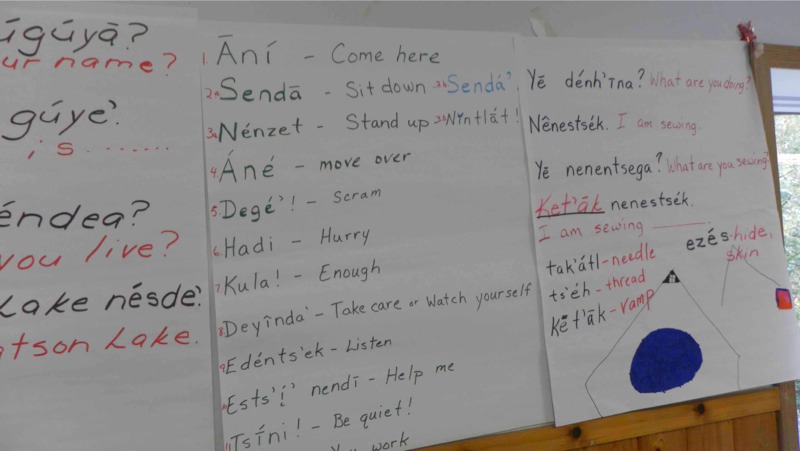 úgúyā?
ur name?
gúye'.
is.......
éndea?
you live?
Lake nésde'.
atson Lake.
1. Āní - Come here
2a Sendā - Sit down 2b Sendá'.
3a Nénzet - Stand up 3b Nīntlát!
4. Áné - move over
5. Degé'! - Scram
6. Hadi - Hurry
7. Kula! - Enough
8. Deyīnda' - Take care or Watch yourself
9. Edénts'ek - Listen
10. Ests'į́' nendī - Help me
11. Tsíni! - Be quiet!
work
Yē dénh'īna? What are you doing?
Nênestsék. I am sewing.
Yē nenentsega? What are you sewing?
Ket'āk nenestsék.
I am sewing ______.
ezés-hide,
skin
tak'átl-needle
ts'éh-thread
kēt'āk-vamp